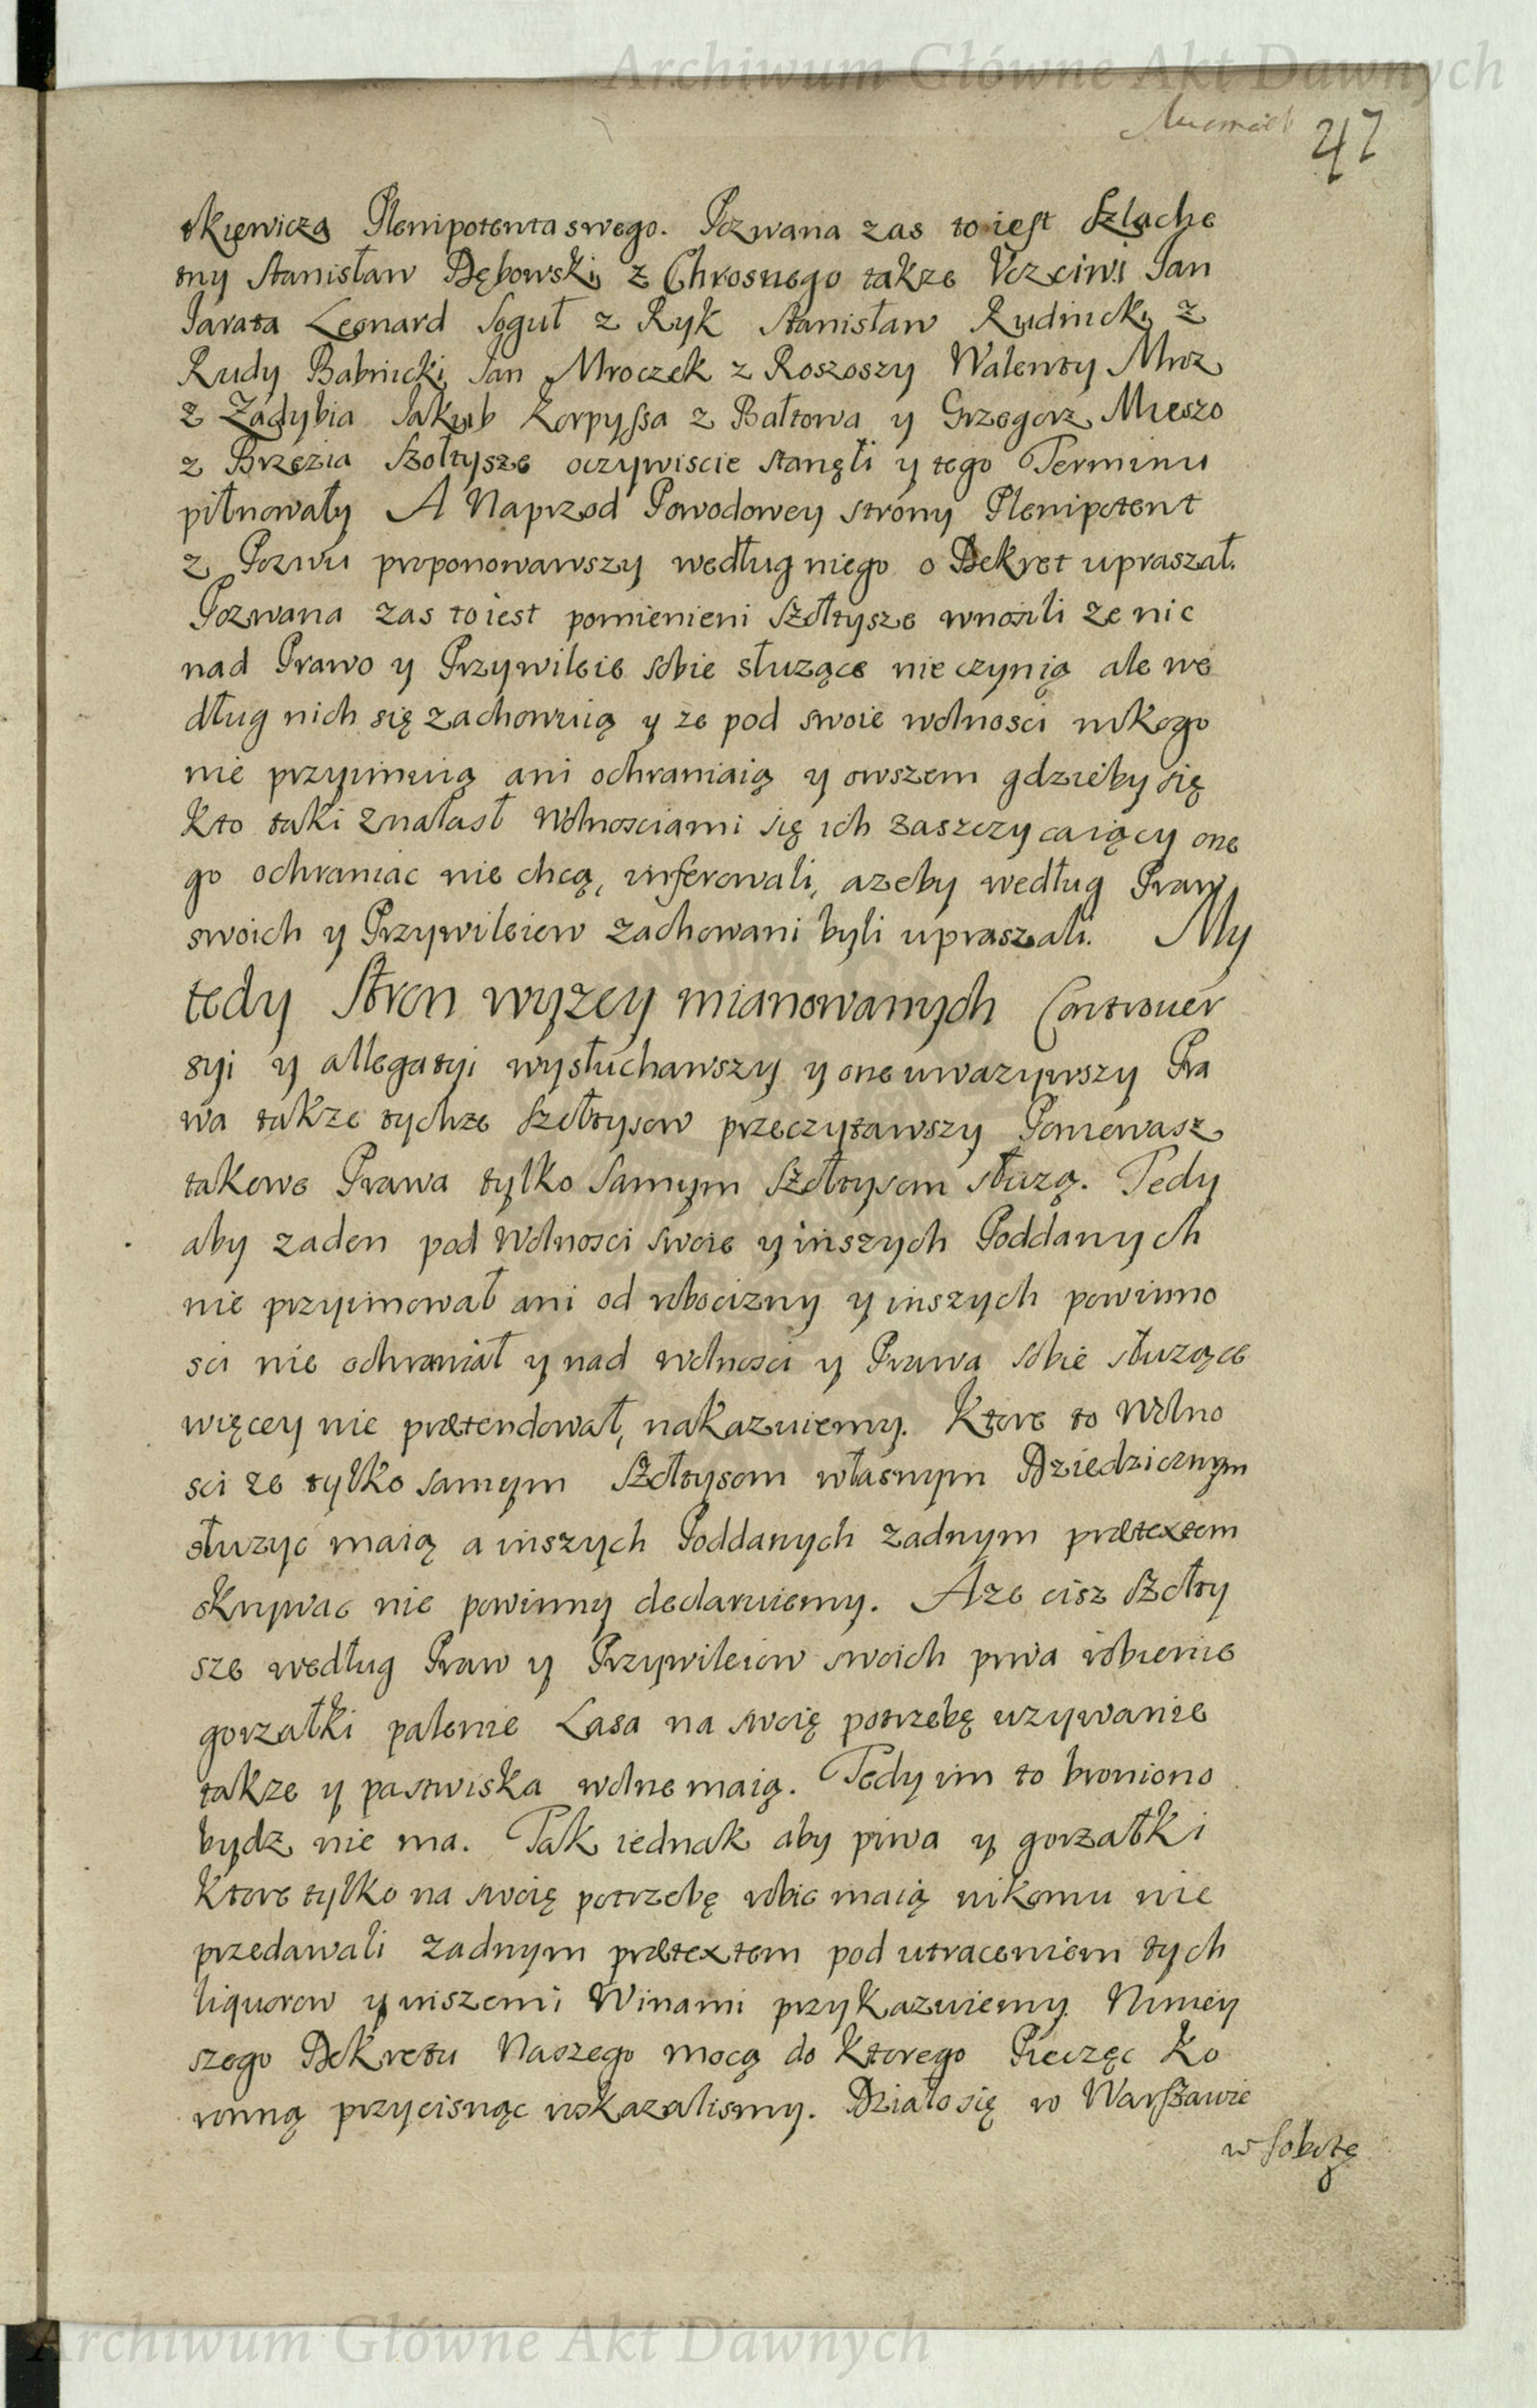 Archiwum Główne Akt Dawnych
47
skiewicza Plenipotenta swego. Pozwana zas to iest Szlache
tny Stanisław Dębowski z Chrosnego takze Vczciwi Jan
Jarata Leonard Soguł z Ryk Stanisław Rudnicki z
Rudy Babnicki Jan Mroczek z Roszoszy Walenty Mroz
z Zadybia Jakub Korpyssa z Bałtowa y Grzegorz Mieszo
z Brzezia Szołtysze oczywiscie stanęli y tego Terminu
piłnowały A Naprzod Powodowey strony Plenipotent
z Pozwu proponowawszy według niego o Dekret upraszał.
Pozwana zas to iest pomienieni Szołtysze wnosili ze nic
nad Prawo y Przywileie sobie słuzące nie czynią ale we
dług nich się zachowuią y ze pod swoie wolnosci nikogo
nie przyimuią ani ochraniaią y owszem gdzieby się
kto taki znalasł Wolnosciami się ich zaszczycaiący one
go ochraniac nie chcą, inferowali, azeby według Praw
swoich y Przywileiow zachowani byli upraszali. My
tedy Stron wyzey mianowanych Controuer
syi y allegatyi wysłuchawszy y one uwazywszy Pra
wa takze tychze Szołtysow przeczytawszy Poniewasz
takowe Prawa tylko samym Szołtysom słuzą. Tedy
aby zaden pod Wolnosci swoie y inszych Poddanych
nie przyimował ani od robocizny y inszych powinno
sci nie ochraniał y nad wolnosci y Prawa sobie słuzące
więcey nie prætendował, nakazuiemy. Ktore to Wolno
sci ze tylko samym Szołtysom własnym Dziedzicznym
słuzyc maią a inszych Poddanych zadnym prætextem
okrywac nie powinny declaruiemy. A ze cisz Szołty
sze według Praw y Przywileiow swoich piwa robienie
gorzałki palenie Lasa na swoię potrzebę uzywanie
takze y pastwiska wolne maią. Tedy im to broniono
bydz nie ma. Tak iednak aby piwa y gorzałki
ktore tylko na swoię potrzebę robic maią nikomu nie
przedawali zadnym prætextem pod utraceniem tych
liquorow y inszemi Winami przykazuiemy. Niniey
szego Dekretu Naszego mocą do ktorego Pieczęc Ko
ronną przycisnąc rozkazalismy. Działo się w Warszawie
w Sobotę
Archiwum Główne Akt Dawnych